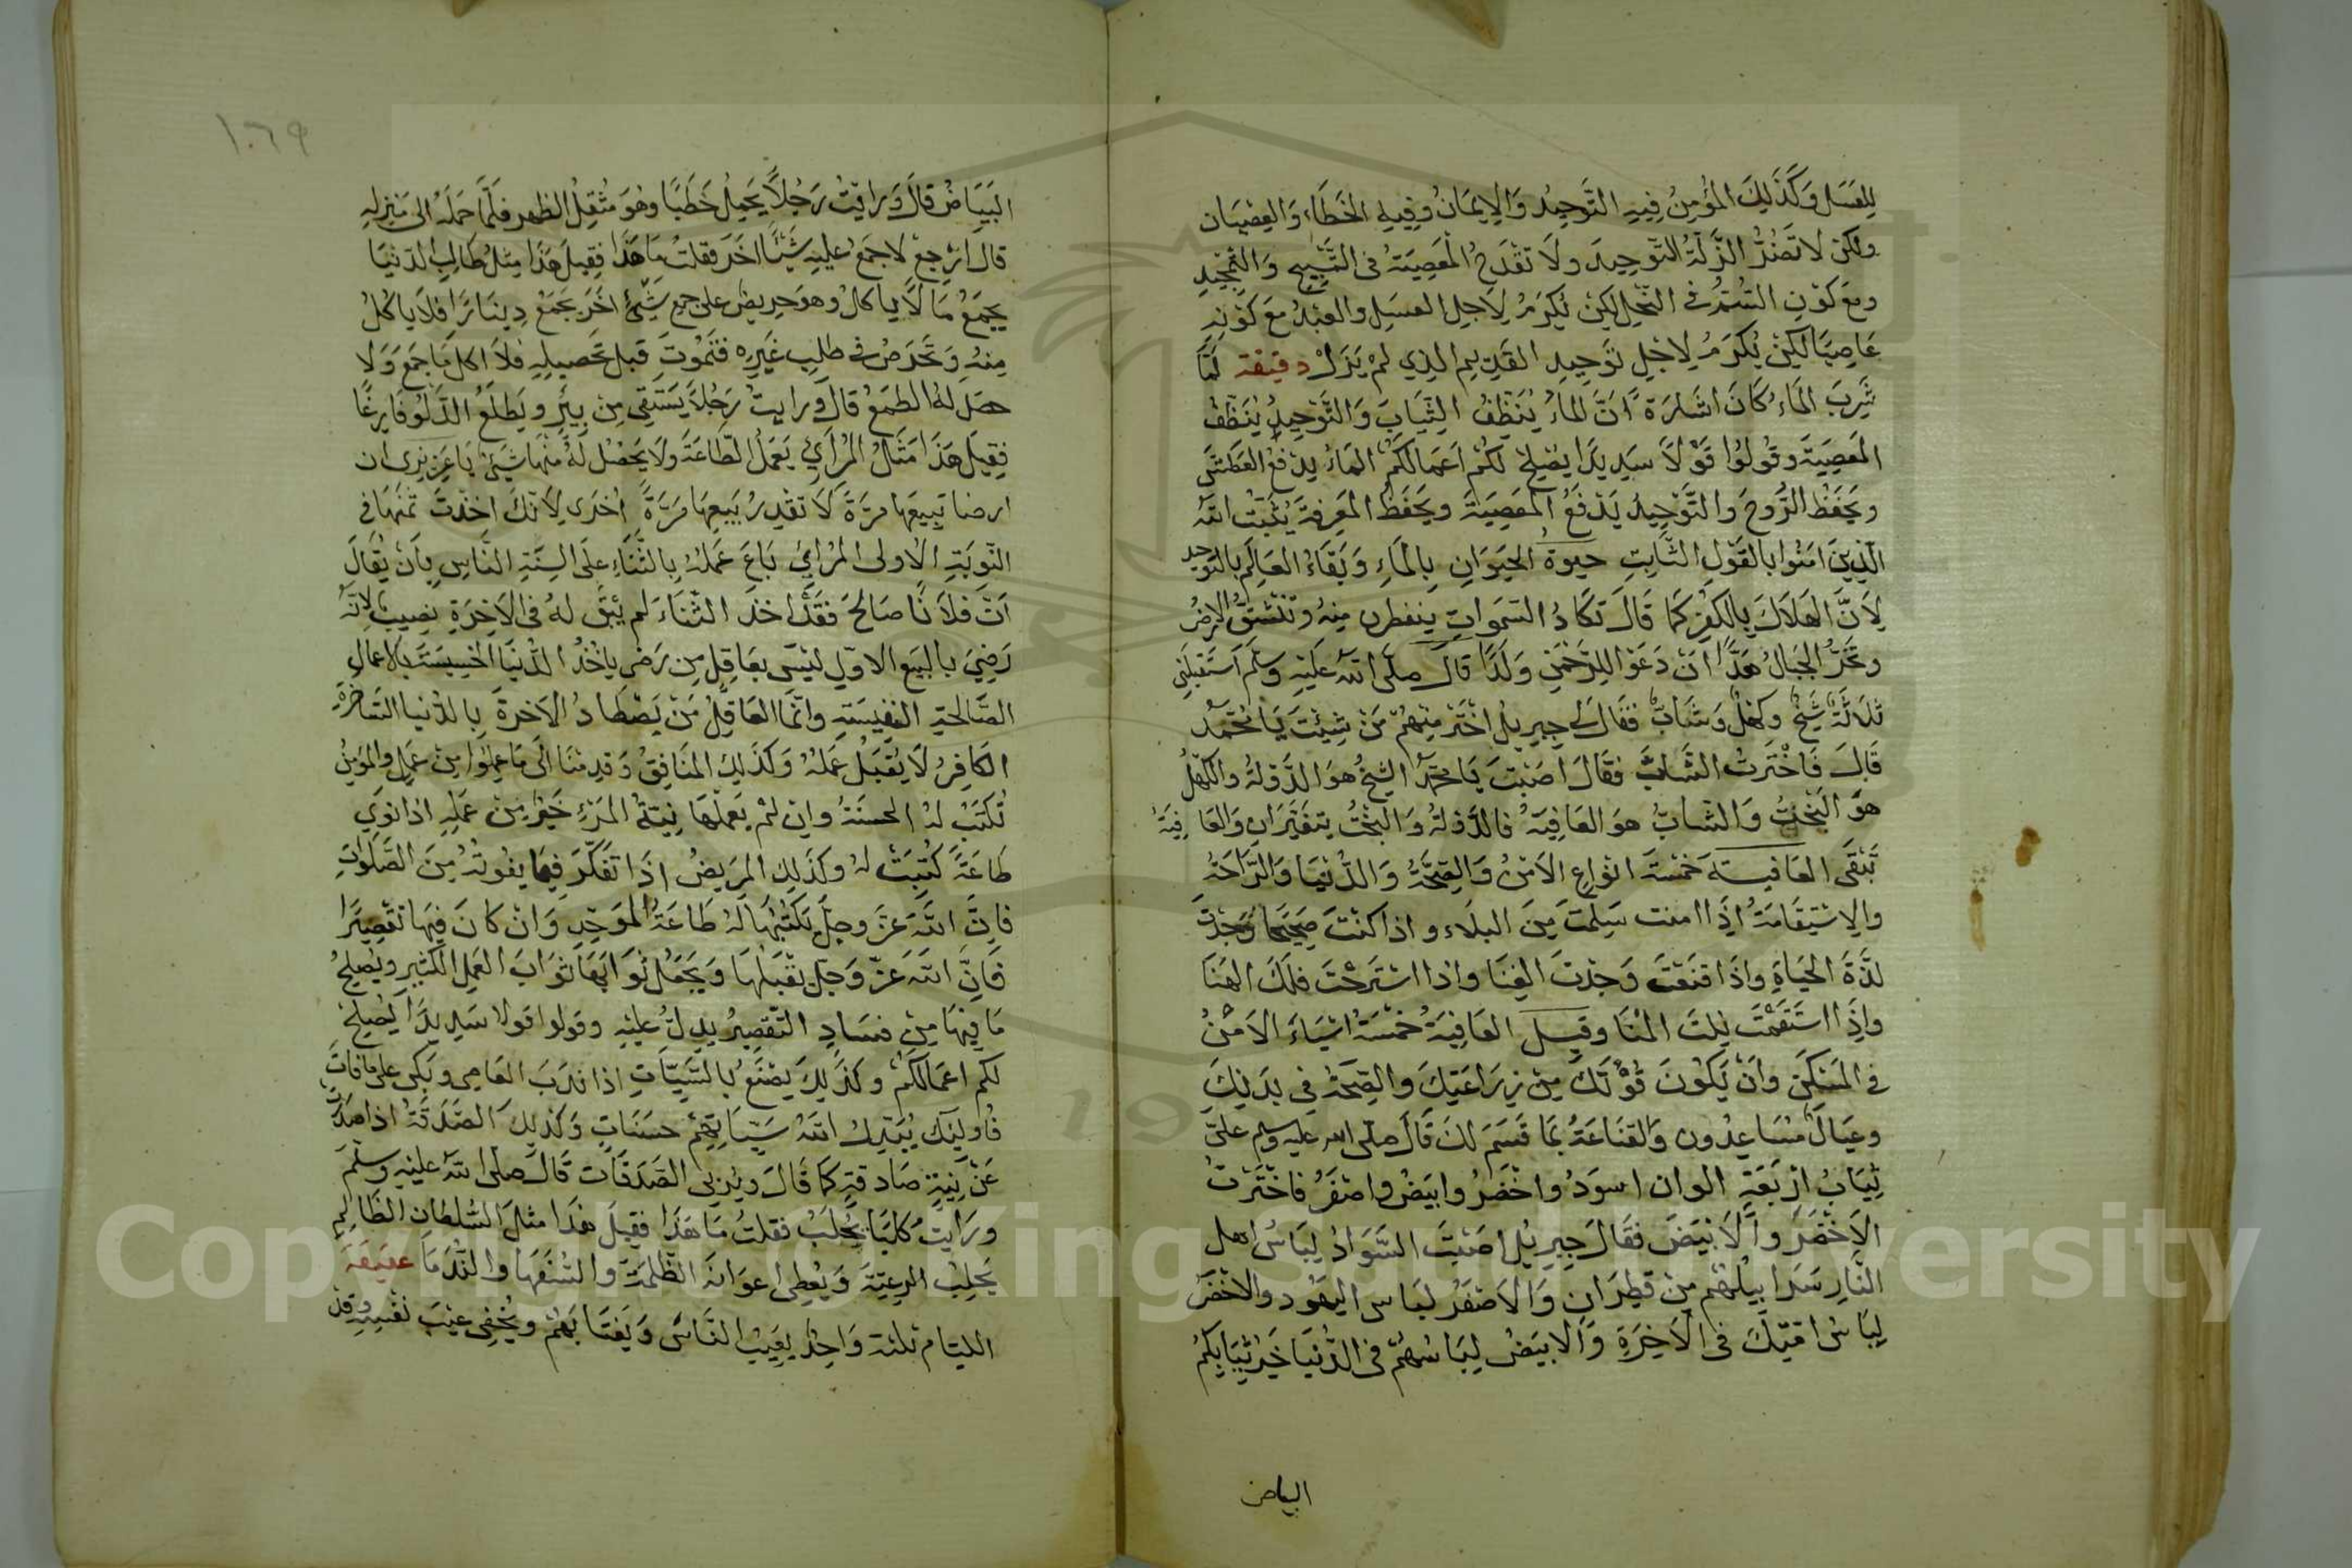 للعسل وَكَذَلِكَ المُؤمِنُ فِيهِ التَّوحِيدُ وَالإِيمَانُ وَفِيهِ الخَطَاء وَالعِصْيَان
ولكن لا تَضُرُّ الزَّلَّةُ التَّوحِيدَ ولَا تقْدَحُ المَعصِيَةُ فى التَّسْبِيح وَالتمْجِيدِ
ومَع كَوْنِ السُّمُّ في النَّحْل لكِنْ يُكرَمُ لِأجلِ العسَلِ والعَبْدُ مَعَ كَوْنِهِ
عَاصِيًا لَكِنْ يُكرَمُ لِاجْلِ تَوحِيدِ القَدِيمِ الذِي لَمْ يَزَلْ دقيقة لَمَّا
شَرِبَ المَاءَ كَانَ اشَارَةً اَنَّ المَاءَ يُنَظِّفُ الثِّيَابَ وَالتَّوْحِيدُ يُنَظِّفُ
المَعصِيَةَ وقُولُوا قَوْلًا سَدِيدًا يُصْلِحْ لكُمْ اَعمَالكُمْ المَاءُ يدْفعُ العَطَشَ
ويَحْفَظُ الرُّوحَ والتَّوْحِيدُ يَدْفَعُ المَعصِيَةَ ويَحفَظُ المَعرِفَةَ يُثَبِّتُ اللّٰه
الّذِينَ امَنُوا بالقَوْلِ الثَّابِتِ حيوةُ الحيَوَانِ بِالمَاءِ وَبَقَاءُ العَالَمِ بالتوحيد
لِاَنَّ الهَلَاكَ بِالكفْرِ كمَا قَالَ تكَادُ السَمَواتِ يتفطرن مِنهُ وتنْشَقُّ الارضُ
وتَخِرُّ الجبَالُ هَدًّا اَنْ دَعَوْا لِلرَّحْمَنِ وَلَدًا قَالَ صلَّى اللّٰه عَليْهِ وسَلّم اَستَقبَلَنِى
ثَلَاثَةٌ شَيْخٌ وكهْلٌ وَشَابٌّ فقَالَ لى جِبرِيلُ اخْتَرْ مِنهُمْ مَنْ شِئْتَ يَا مُحَمَّدُ
قَالَ فَاخْتَرتُ الشَّابَّ فقَالَ اصَبْتَ يَا محَمَّدُ الشيْخُ هوَ الدَّوْلةُ والكَهْلُ
هوَ البَخْتُ وَالشابُّ هوَ العَافِيَةُ فالدَّوْلةُ وَالبَخْتُ يتغَيَّرَانِ وَالعَافِيَةُ
تَبْقَى العَافيةُ خمْسَةَ انوَاعٍ الاَمْنُ وَالصِّحَّةُ وَالدُّنْيَا وَالرَّاحَةُ
والاِسْتِقَامَةُ اِذَا امنت سَلِمْتَ مِنَ البلَاء و اذا كنْتَ صَحِيحًا وَجَدْتَ
لذَّةَ الحَيَاةِ واذَا قنَعْتَ وَجَدْتَ الغِنَا واذا اسْتَرَحْتَ فَلَكَ الهَنَا
واِذَا اسْتَقَمْتَ نِلتَ المُنَا وقيل العَافِيَةُ خَمْسَةُ اشيَاءَ الاَمْنُ
فى المَسْكَنِ وَاَنْ يَكُونَ قُوْتُكَ مِنْ زِرَاعَتِكَ والصِّحَةُ فى بَدَنِكَ
وعيَالٌ مُسَاعِدُون وَالقنَاعَةُ بمَا قَسَمَ لكَ قَالَ صلّى الله عليه وسلم علَيّ
ثِيَابُ اَرْبَعَةِ الوان اسوَدُ واخْضَرُ وابيَضُ واصْفَرُ فَاخْتَرْتُ
الاَخْضَرَ والاَبيَضَ فقَالَ جِبرِيْلُ اصَبْتَ السَّوَادُ لِبَاسُ اهل
النَّارِ سَرَا بِيلُهُمْ مِنْ قطِرَانٍ وَالاَصْفَرُ لبَاس اليَهُود والاخْضَرُ
لِبَاسُ امَّتِكَ فى الاَخِرَةِ وَالابيَضُ لِبَاسُهُمْ فى الدُّنيَا خَيرُ ثِيَابِكُمُ
البياض
١٠٦٩
البَيَاضُ قالَ وَرايْتُ رَجُلًا يَحْمِلُ حَطَبًا وهُوَ مُثْقِلُ الظهرِ فَلَمَّا حَمَلَهُ الى مَنزِلهِ
قالَ ارْجِعْ لاجمَعَ عَليْهِ شَيْئًا اخَرَ فقلتُ مَا هَذَا فَقِيلَ هَذَا مِثلُ طَالِبِ الدّنْيَا
يَجمَعُ مَا لَا ياكلُ وهوَ حرِيصٌ على جمعِ شَيْئٍ اَخَرَ يجمَعُ دِينَارًا فلَا يَاكُلُ
مِنهُ وَيَحْرَصُ في طلِبِ غَيرِهِ فَيَمُوتَ قَبلَ تَحصِيلِهِ فلَا اكلَ مَا جمَعَ وَلَا
حصَل لهُ الطمعُ قالَ ورايتُ رَجُلًا يَسْتَقِى مِنْ بِيرٍ و يَطلعُ الدَّلوُ فارِغًا
فَقِيلَ هَذَا مَثَلُ المُرَائِي يَعمَلُ الطَّاعَةَ وَلَا يَحْصُل لَهُ مِنْهَا شَيْئٌ
ارضا تَبِيعُهَا مَرَّةً لَا تقْدِرُ بَيعهَا مَرَّةً اُخرَى لِاَنَّكَ اخَذْتَ ثمَنَهَا فى
النَّوبَةِ الاُولى المُرائى بَاعَ عَمَلَهُ بِالثَّنَاءِ علَى السِنَةِ النَّاسِ بِاَنْ يُقَالَ
انّ فلَانًا صَالحٌ فقَدْ اخذ الثّنَاءَ لم يَبْقَ لهُ فى الاَخِرَةِ نصيبٌ لِانّهُ
رَضِىَ بالبيع الاوّلِ ليْسَ بعَاقِلٍ مَن رَضِىَ يَأخُذُ الدّنيَا الخَسِيسَةَ بِالاعْمَالِ
الصَّالحَةِ النفِيسَةِ واِنّمَا العَاقِلُ مَنْ يَصْطَادُ الاَخِرةَ بِالدُّنيَا
الكافِرُ لَا يُقبَلُ عَمَلهُ وَكَذَلِكَ المُنَافِقُ وَقدِمْنَا الَى مَا عمِلُوا مِنْ عَمَلٍ والمُؤمِنُ
تُكتَبُ لهُ الحسَنَةُ واِن لمْ يَعمَلْهَا نِيَّةُ المَرْءِ خَيْرٌ مِنْ عَمَلِهِ اذا نَوَى
طَاعَةً كُتِبَتْ لهُ وكَذَلِكَ المَرِيضُ اِذَا تفَكَّرَ فِيمَا يفُوتُهُ مِنَ الصَّلَوَاتِ
فاِنَّ اللّٰهَ عَزّ وجَلّ يَكتُبُهَا لَهُ طَاعَةُ المُوَحِّدِ وَانْ كانَ فِيهَا تَقْصِيرًا
فَاِنَّ اللّٰهَ عَزّ وَجَلّ يَقْبَلهَا وَيَجعَلُ ثوَابَهَا ثوَابَ العَمَلِ الكَثِيرِ ويُصلِحُ
مَا فِيهَا مِنْ فسَادِ التّقصِيرِ يدلُّ عليْهِ وقولوا قولا سَدِيدًا يُصْلِحْ
لكم اعمَالكُمْ وكَذَلِكَ يَصْنَعُ بالسَّيِّئَاتِ اذا نَدِبَ العَاصِى وبَكى على مَا فَاتَ
فاُولئِكَ يُبَدِّلُ اللّٰهُ سَيِّئَاتِهِمْ حسَنَاتٍ وَكذَلِكَ الصَّدَقَةُ اذا صَدَرَتْ
عَنْ نِيَّةٍ صَادِقةٍ كمَا قَالَ ويُرْبِى الصَّدَقَات قَالَ صلى اللّٰه عليْهِ وسلّمَ
ورَايتُ كَلبًا يُحلَبُ فقلتُ مَا هَذَا فقِيلَ هَذَا مثلُ السُّلطَانِ الظَّالِمِ
يَحلِبُ الرعِيّةَ وَيُعْطِى اعوَانَهُ الظّلمَةَ والسُّفَهَا والنُّدَمَا عقيقة
الليَام ثلثة وَاحِدٌ يعَيبُ النَّاسَ وَيَغتَابَهُمْ ويُخْفِى عَيْبَ نَفْسِهِ وقد
Copyright © King Saud University
19